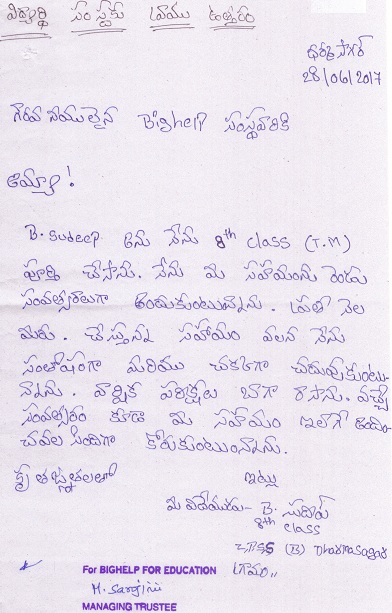 విద్యార్థి సంస్థకు వ్రాయు ఉత్తరం
ధర్మసాగర్
28/06/2017
గౌరవనీయులైన Bighelp సంస్థవారికి
అమ్మా!
B. sudeep అను నేను 8th class (T.M)
పూర్తి చేసాను. నేను మీ సహాయంను రెండు
సంవత్సరాలుగా అందుకుంటున్నాను. ప్రతి నెల
మీరు చేస్తున్న సహాయం వలన నేను
సంతోషంగా మరియు చక్కగా చదువుకుంటు-
న్నాను. వార్షిక పరీక్షలు బాగా రాసాను. వచ్చే
సంవత్సరం కూడా మీ సహాయం ఇలాగే అందిం-
చవలసిందిగా కోరుకుంటున్నాను.
కృతజ్ఞతలతో ఇట్లు
మీ విదేయుడు- B. సుదీప్
8th class
(B) Dharmasagar
గ్రామం,,
For BIGHELP FOR EDUCATION
M. Sarojini
MANAGING TRUSTEE